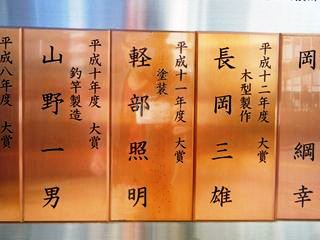 岡　綱幸
平成十二年度　大賞
木型製作
長岡三雄
平成十一年度　大賞
塗装
軽部照明
平成十年度　大賞
釣竿製造
山野一男
平成八年度　大賞